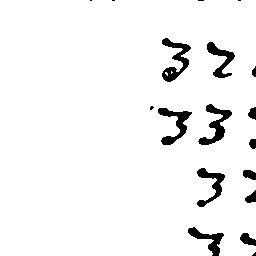 32
33
3
3